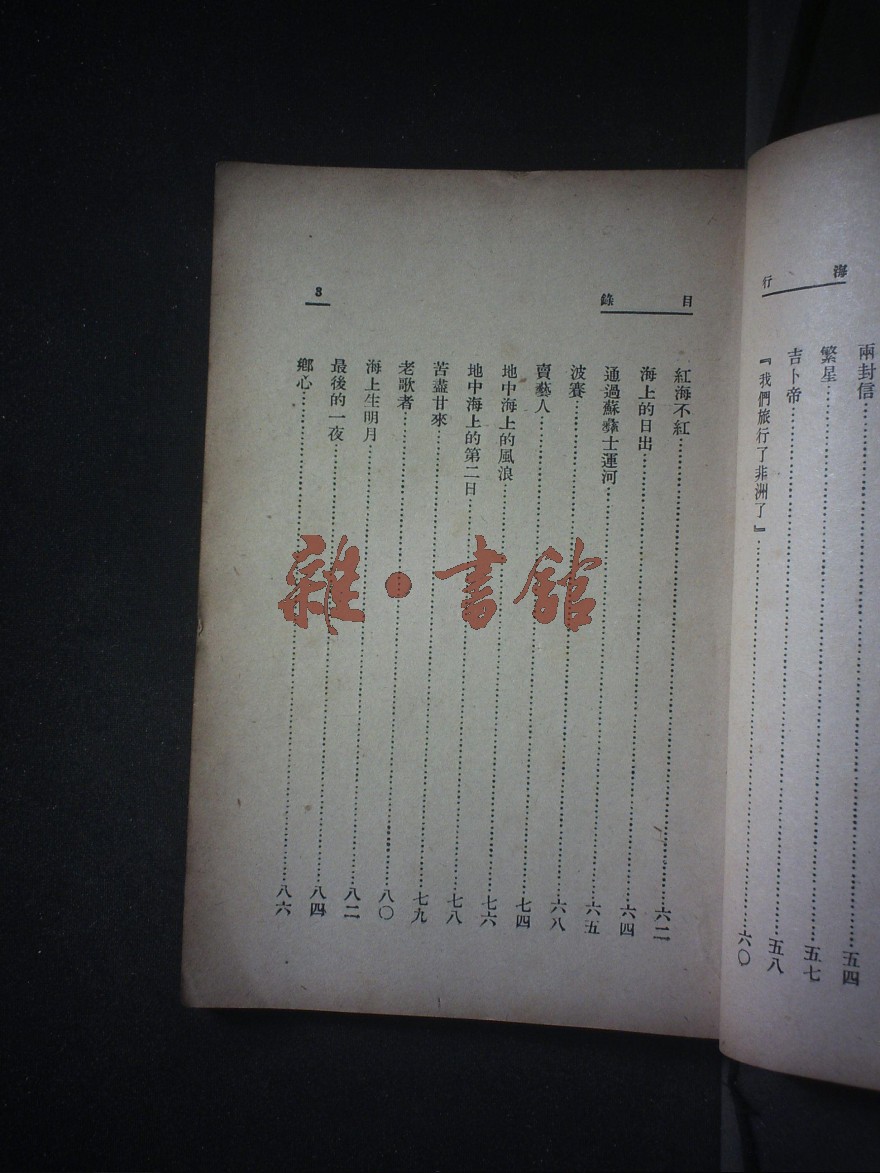 海行
兩封信……五四
繁星……五七
吉卜帝……五八
『我們旅行了非洲了』……六〇
目錄
3
紅海不紅……六二
海上的日出……六四
通過蘇彝士運河……六五
波賽……六八
賣藝人……七四
地中海上的風浪……七六
地中海上的第二日……七八
苦盡甘來……七九
老歌者……八〇
海上生明月……八二
最後的一夜……八四
鄉心……八六
雜·書館